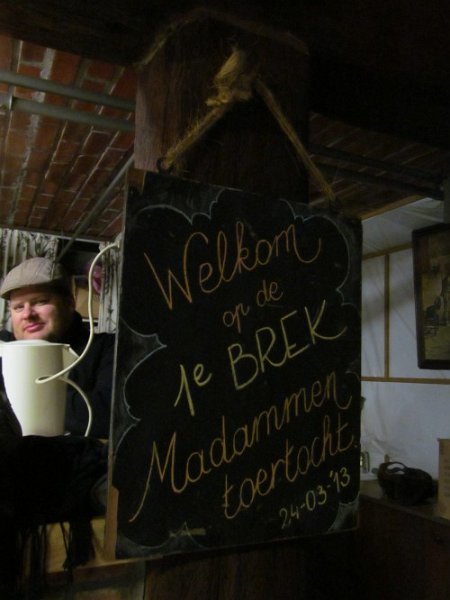 Welkom
op de
1e BREK
Madammen
toertocht
24-03-'13